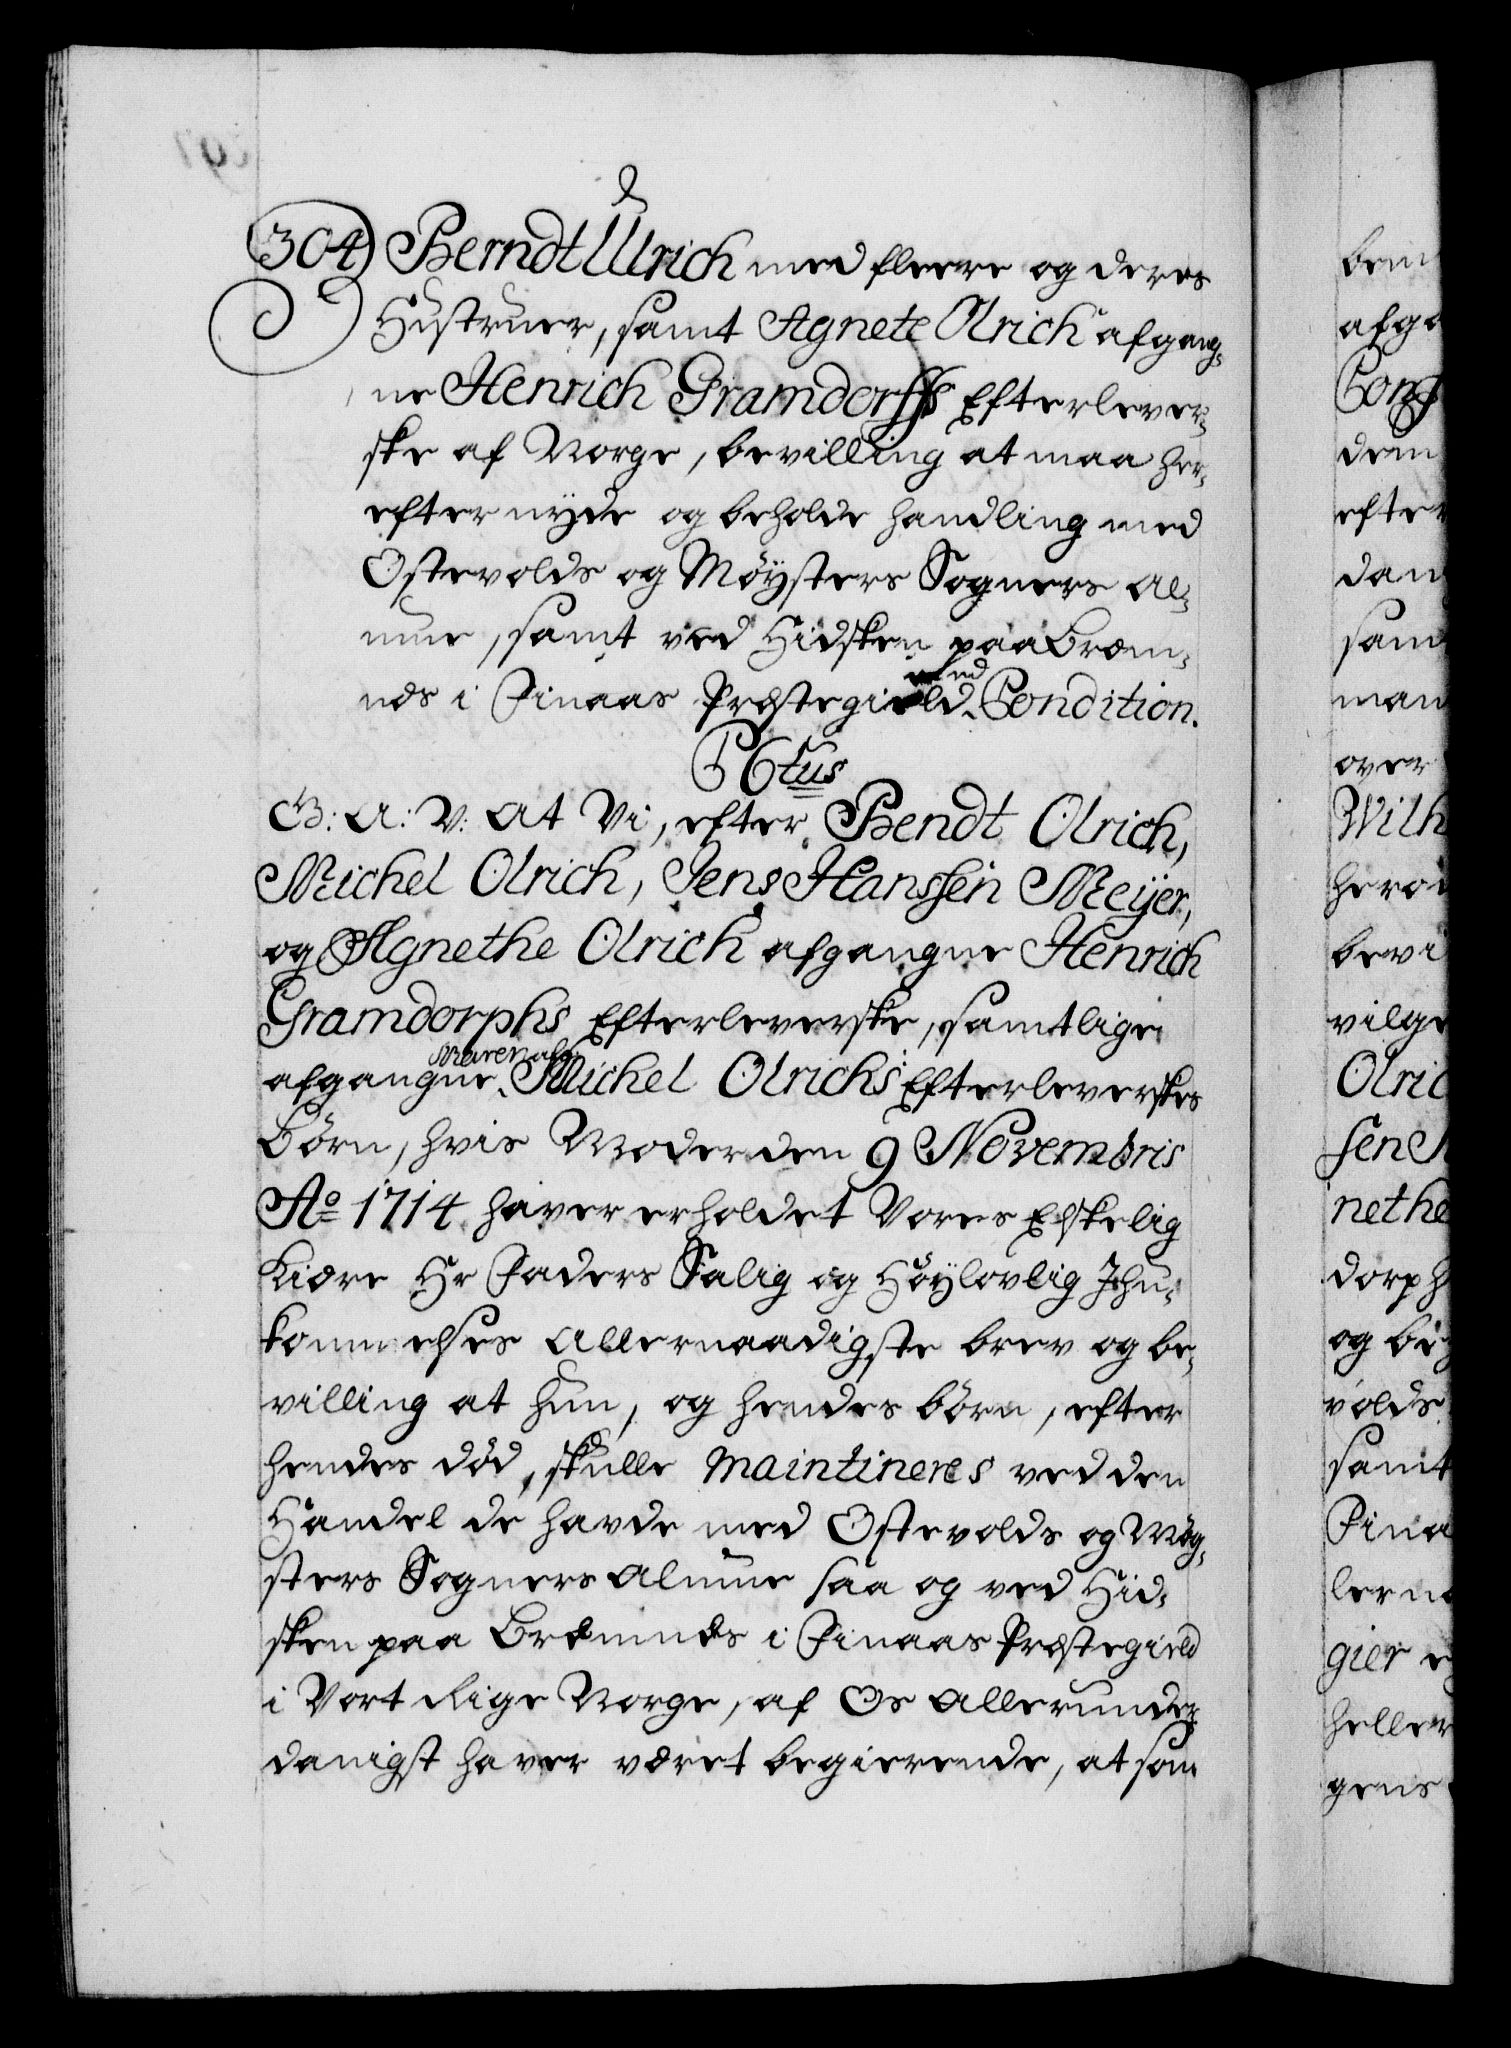 304) Berndt Ulrich med fleere og deres
Hustruer, samt Agnete Olrich afgang-
ne Henrich Gramdorffs Efterlever-
ske af Norge, bevilling at maa her-
efter nyde og beholde handling med
Ostevolds og Møysters Sogners Al-
mue, samt ved Hidsken paa Brem-
nes i Finaas Præstegield med Condition.
C 6tus
G: A: V: At Vi, efter Bendt Olrich,
Michel Olrich, Jens Hanssen Meijer,
og Agnethe Olrich afgangne Henrich
Gramdorphs Efterleverske, samtlige
afgangne Maren afg: Michel Olrichs Efterleverskes
Børn, hvis Moder den 9 Novembris
Ao 1714 haver erholdet Vores Elskelig
Kiære Hr Faders Salig og Høylovlig Ihu-
kommelses Allernaadigste brev og be-
villing at hun, og hendes børn, efter
hendes død, skulle maintineres ved den
Handel de havde med Ostevolds og Møg-
sters Sogners Almue saa og ved Hid-
sken paa Bremnes i Finaas Præstegield
i Vort Rige Norge, af Os Allerunder-
danigst haver været begierende, at som
bem
afga
Cong
dem
efter
dan
sam
man
over
Wilh
heraf
bevi
vilge
Olric
sen
nethe
dorph
og be
volds
samt
Fina
lerna
gier
heller
gens